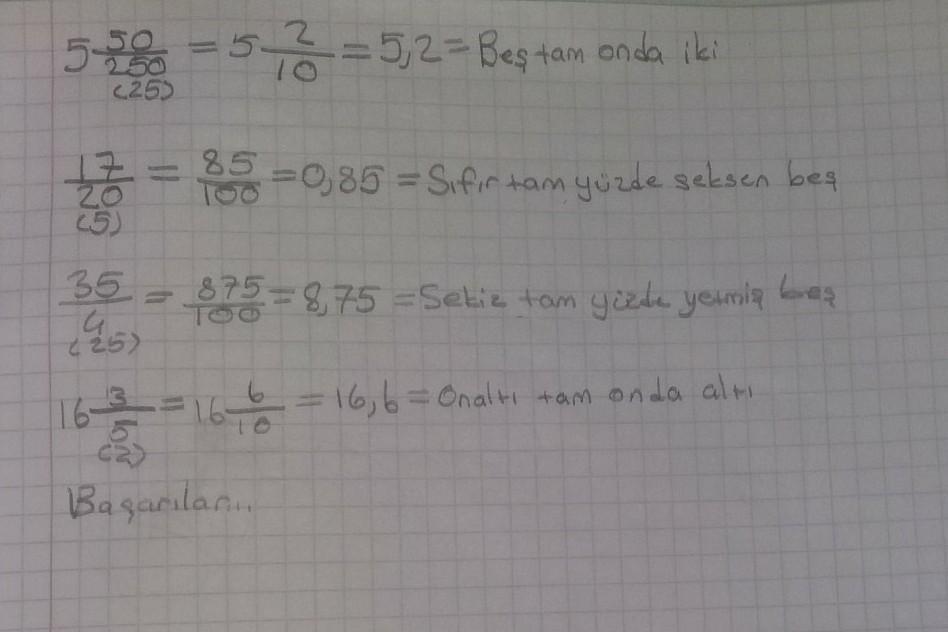 5 50/250 (25) = 5 2/10 = 5,2 = Beş tam onda iki
17/20 (5) = 85/100 = 0,85 = Sıfır tam yüzde seksen beş
35/4 (25) = 875/100 = 8,75 = Sekiz tam yüzde yetmiş beş
16 3/5 (2) = 16 6/10 = 16,6 = Onaltı tam onda altı
Başarılar...